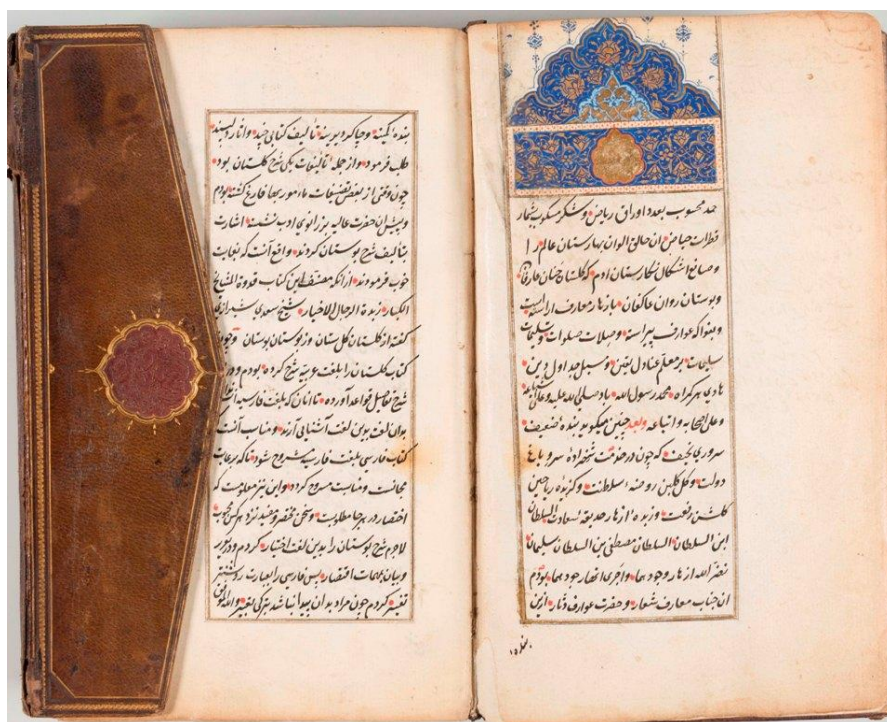 حمد محسوب بعدد اوراق ریاض وشکر مسکوب بشمار
قطرات حیاض ان خالق الوان بهارستان عالم را
وصانع اشکال نکارستان ادم که کلستان جنان عارفان
وبوستان روان عاکفان بازهار معارف اراسته است
وبفواکه عوارف پیراسته وصلات صلوات وتسلیمات
بر معلم عنادل یقین وسبیل جداول دین
هادی هر کمراه محمد رسول الله باد صلی الله علیه وعلی
وعلی اصحابه واتباعه وبعد چنین میکوید بنده ضعیف
سروری نحیف که چون در خدمت شهزاده سرو باغ
دولت وکل کلبن روضه سلطنت وکزیده ریاحین
کلشن رفعت وزبده ازهار حدیقه سعادت السلطان
ابن السلطان السلطان مصطفی بن السلطان سلیمان
نضر الله ازهار وجودهما واجری انهار جودهما بودم
ان جناب معارف شعار وحضرت عوارف دثار ازین
بنده
بنده کمینه وچاکر دیرینه تألیف کتابی چند واثار دلپسند
طلب فرمود واز جمله تألیفات یکی شرح کلستان بود
چون وقتی از بعض تصنیفات مأمور بها فارغ کشته بودم
وپیش ان حضرت عالیه بر زانوی ادب نشسته اشارت
بتألیف شرح بوستان کردند واقع آنست که بغایت
خوب فرمودند ازانکه مصنف این کتاب قدوة المشایخ
الکبار زبدة الرجال الاخیار شیخ سعدی شیرازی
کفته از کلستان کل ستان وز بوستان بوستان وچون
کتاب کلستان را بلغت عربیه شرح کرده بودم ودر
شرح تفاصیل قواعد آورده تا انان که بلغت فارسیه
بدان لغت بدین لغت آشنایی آرند ومناسب آنست
کتاب فارسی بلغت فارسیه مشروح شود تا که برعایت
مجانست ومناسبت مشروح کردد واین نیز معلومست که
اختصار در هر جا مطلوبست وسخن مختصر ومفید نزد هر کس محبوب
لاجرم شرح بوستان را بدین لغت اختیار کردم ودر
وبیان مهمات اقتصار پس فارسی را بعبارت روشنتر
تعبیر کردم چون مراد بدان پیدا نباشد بترکی تعبیر والله